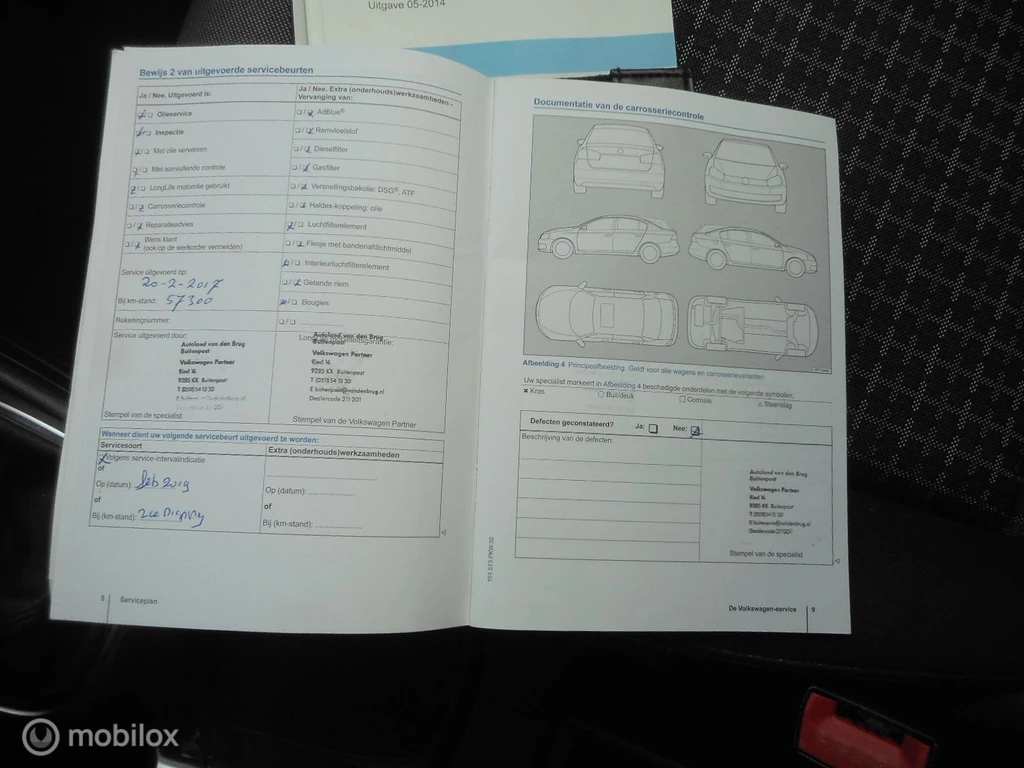 Uitgave 05-2014
Bewijs 2 van uitgevoerde servicebeurten
Ja / Nee. Uitgevoerd is:
Olieservice
Inspectie
Met olie verversen
Met aanvullende controle
LongLife motorolie gebruikt
Carrosseriecontrole
Reparatieadvies
Wens klant
(ook op de werkorder vermelden)
Service uitgevoerd op:
20-2-2017
Bij km-stand: 57300
Rekeningnummer:
Service uitgevoerd door:
Autoland van den Brug
Buitenpost
Volkswagen Partner
Ried 16
9285 KK Buitenpost
Stempel van de specialist
Ja / Nee. Extra (onderhouds)werkzaamheden -
Vervanging van:
AdBlue®
Remvloeistof
Dieselfilter
Gasfilter
Versnellingsbakolie: DSG®, ATF
Haldex-koppeling: olie
Luchtfilterelement
Flesje met bandenafdichtmiddel
Interieurluchtfilterelement
Getande riem
Bougies
Autoland van den Brug
Buitenpost
Volkswagen Partner
Ried 16
9285 KX Buitenpost
T (0511) 54 13 30
E buitenpost@vandenbrug.nl
Dealercode 211 201
Stempel van de Volkswagen Partner
Wanneer dient uw volgende servicebeurt uitgevoerd te worden:
Servicesoort
Volgens service-intervalindicatie
of
Op (datum): feb 2019
of
Bij (km-stand): zie Display
Extra (onderhouds)werkzaamheden
Op (datum):
of
Bij (km-stand):
8 Serviceplan
151.5T3.PKW.32
Documentatie van de carrosseriecontrole
Afbeelding 4 Principeafbeelding. Geldt voor alle wagens en carrosserievarianten
Uw specialist markeert in Afbeelding 4 beschadigde onderdelen met de volgende symbolen:
× Kras
○ Buil/deuk
□ Corrosie
△ Steenslag
Defecten geconstateerd? Ja: Nee:
Beschrijving van de defecten:
Autoland van den Brug
Buitenpost
Volkswagen Partner
Ried 16
9285 KX Buitenpost
T (0511) 54 13 30
E buitenpost@vandenbrug.nl
Dealercode 211 201
Stempel van de specialist
De Volkswagen-service 9
mobilox